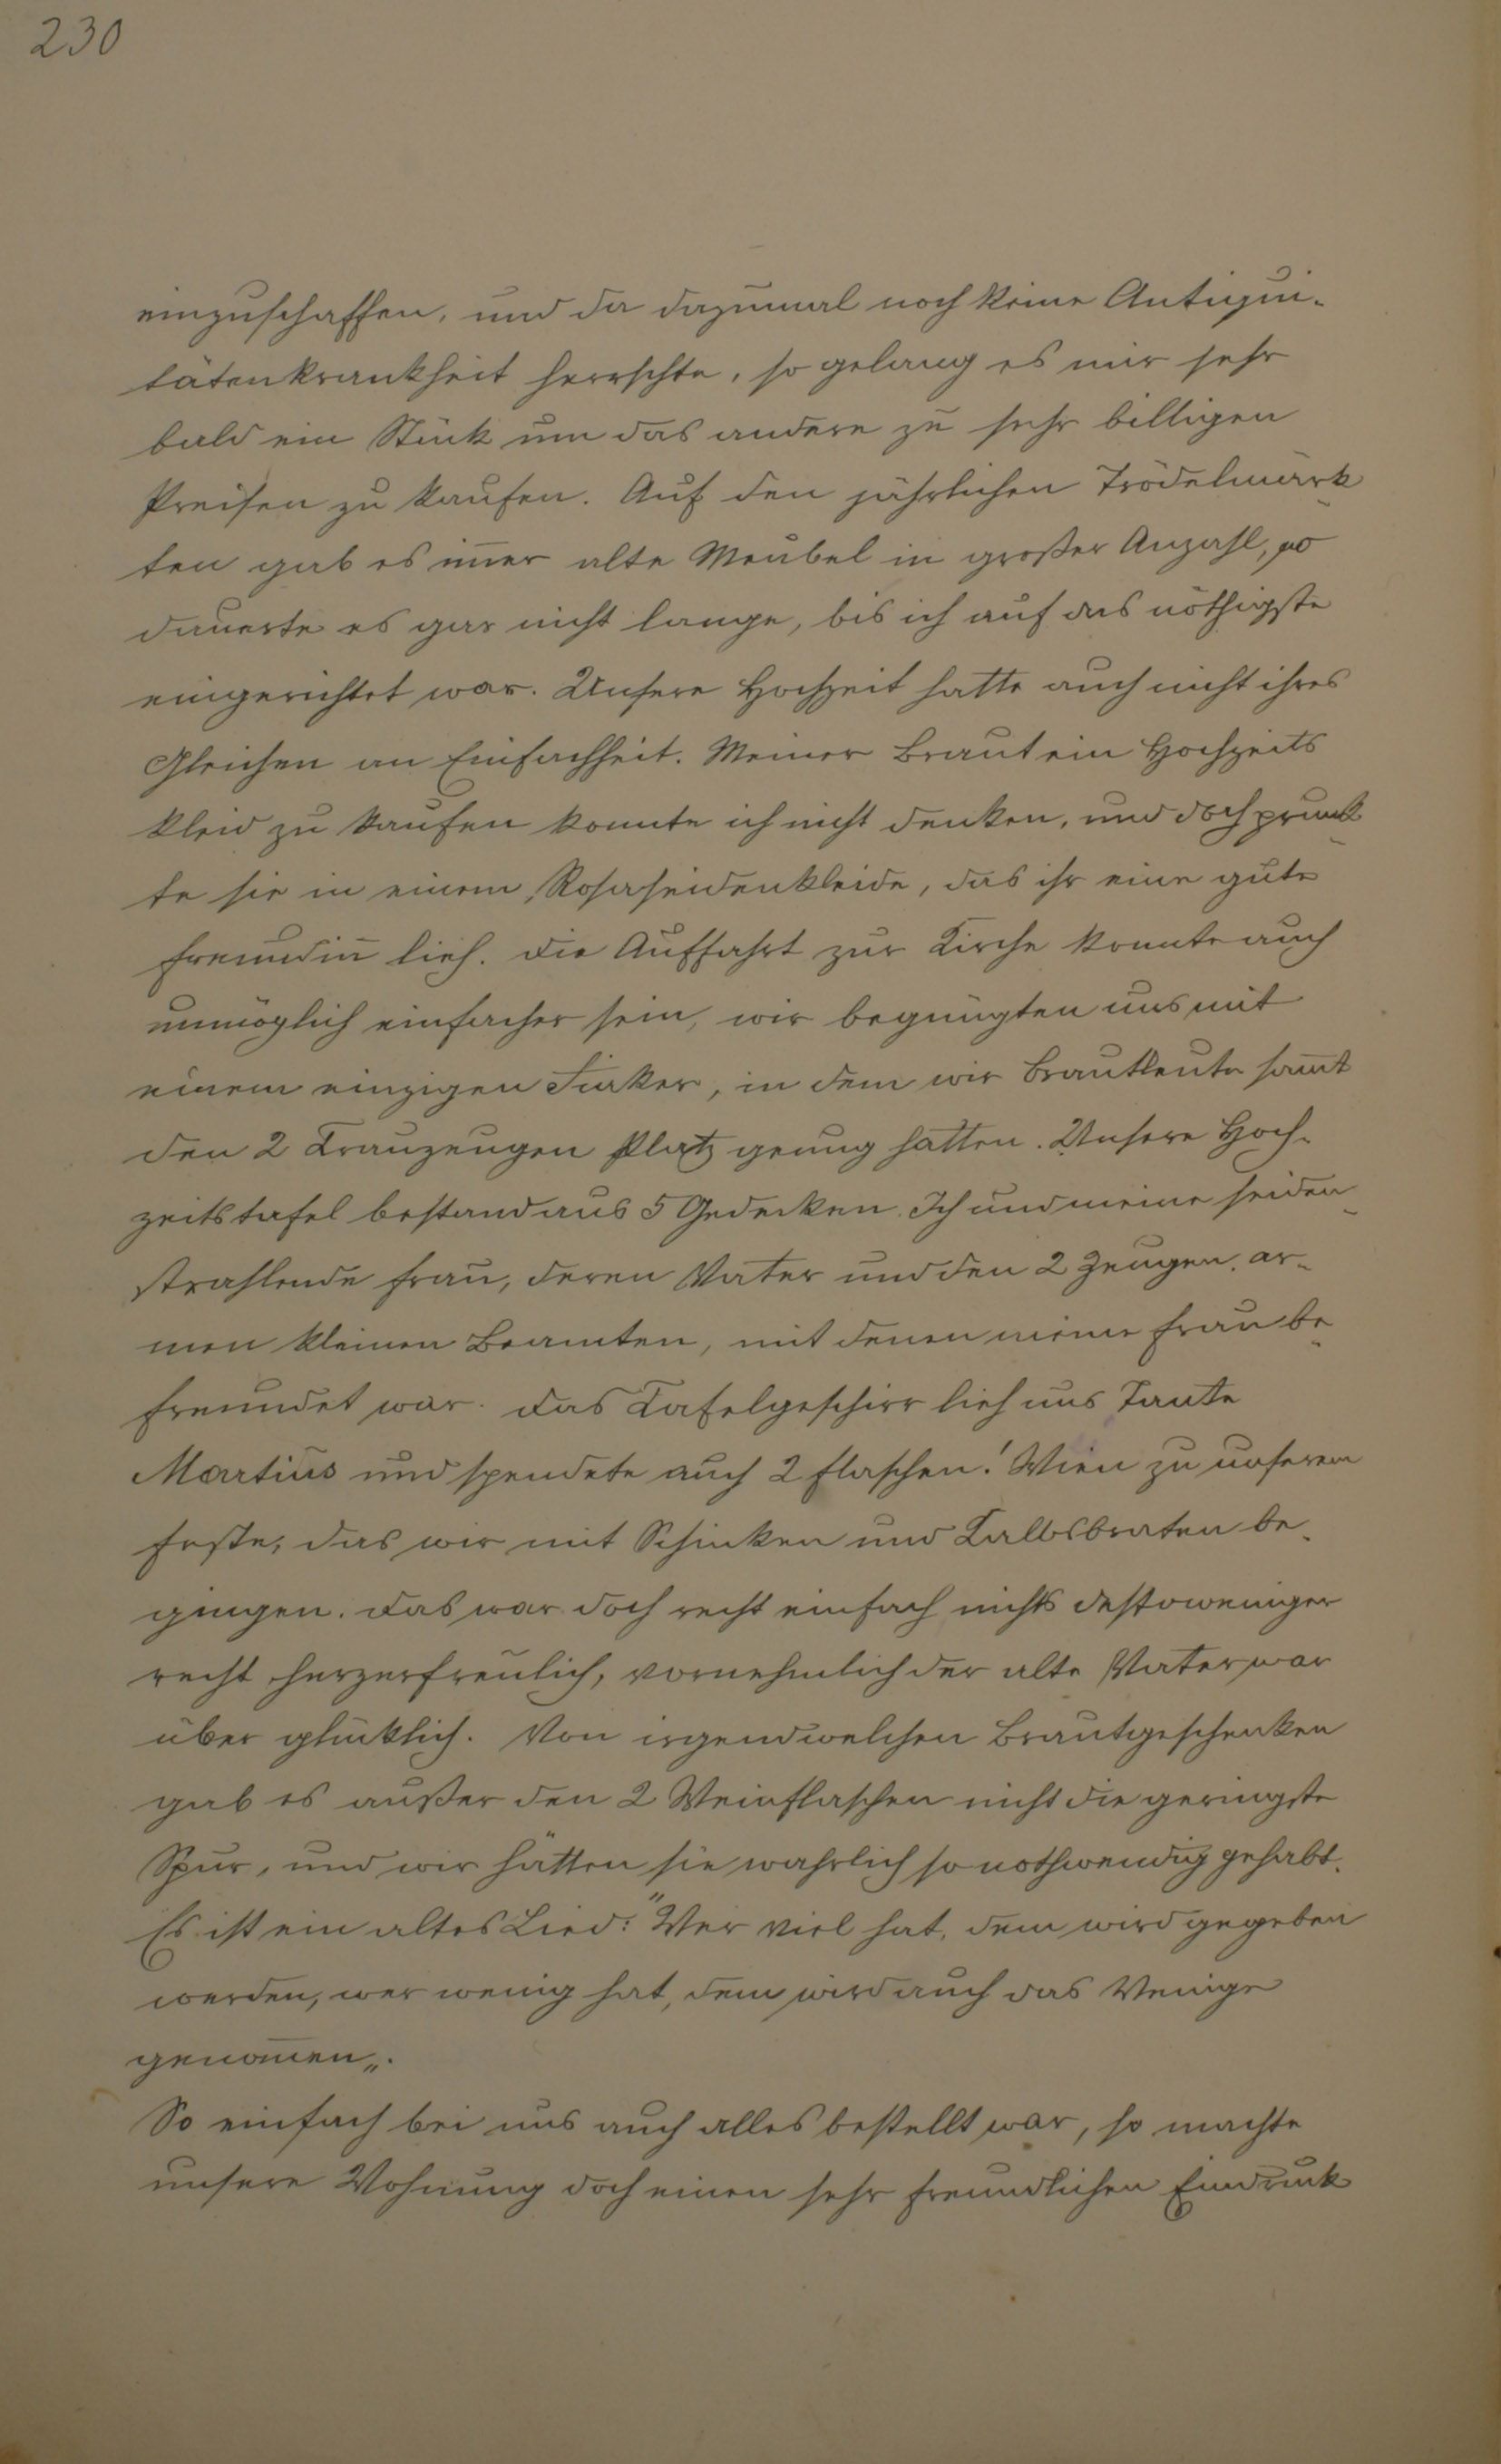 230
einzuschaffen, und da dazumal noch keine Antiqui-
tätenkrankheit herrschte, so gelang es mir sehr
bald ein Stück um das andere zu sehr billigen
Preisen zu kaufen. Auf den jährlichen Trödelmärk-
ten gab es im̄er alte Meubel in großer Anzahl, so
dauerte es gar nicht lange, bis ich auf das nöthigste
eingerichtet war. Unsere Hochzeit hatte auch nicht ihres
Gleichen an Einfachheit. Meiner Braut ein Hochzeits
kleid zu kaufen konnte ich nicht denken, und doch prunk-
te sie in einem Rosaseidenkleide, das ihr eine gute
Freundin̄ lieh. Die Auffahrt zur Kirche konnte auch
unmöglich einfacher sein, wir begnügten uns mit
einem einzigen Fiaker, in dem wir Brautleute sam̄t
den 2 Trauzeugen Platz genug hatten. Unsere Hoch-
zeitstafel bestand aus 5 Gedecken. Ich und meine seiden-
strahlende Frau, deren Vater und den 2 Zeugen, ar-
men kleinen Beamten, mit denen meine Frau be-
freundet war. Das Tafelgeschirr lieh uns Tante
Martius und spendete auch 2 Flaschen! Wien zu unserem
Feste, das wir mit Schinken und Kalbsbraten be-
gingen. Das war doch recht einfach nichts destoweniger
recht herzerfreulich, vornehmlich der alte Vater war
über glücklich. Von irgendwelchen Brautgeschenken
gab es außer den 2 Weinflaschen nicht die geringste
Spur, und wir hätten sie wahrlich so nothwendig gehabt.
Es ist ein altes Lied: "Wer viel hat, dem wird gegeben
werden, wer wenig hat, dem wird auch das Wenige
genom̄en„.
So einfach bei uns auch alles bestellt war, so machte
unsere Wohnung doch einen sehr freundlichen Eindruck